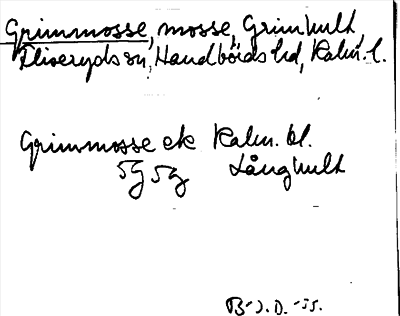 Grimmosse, mosse, Grimhult,
Fliseryds sn, Handbörds hd, Kalm. l.
Grimmosse ek Kalm. bl.
5g 5g Långhult
B-J.D. -55.